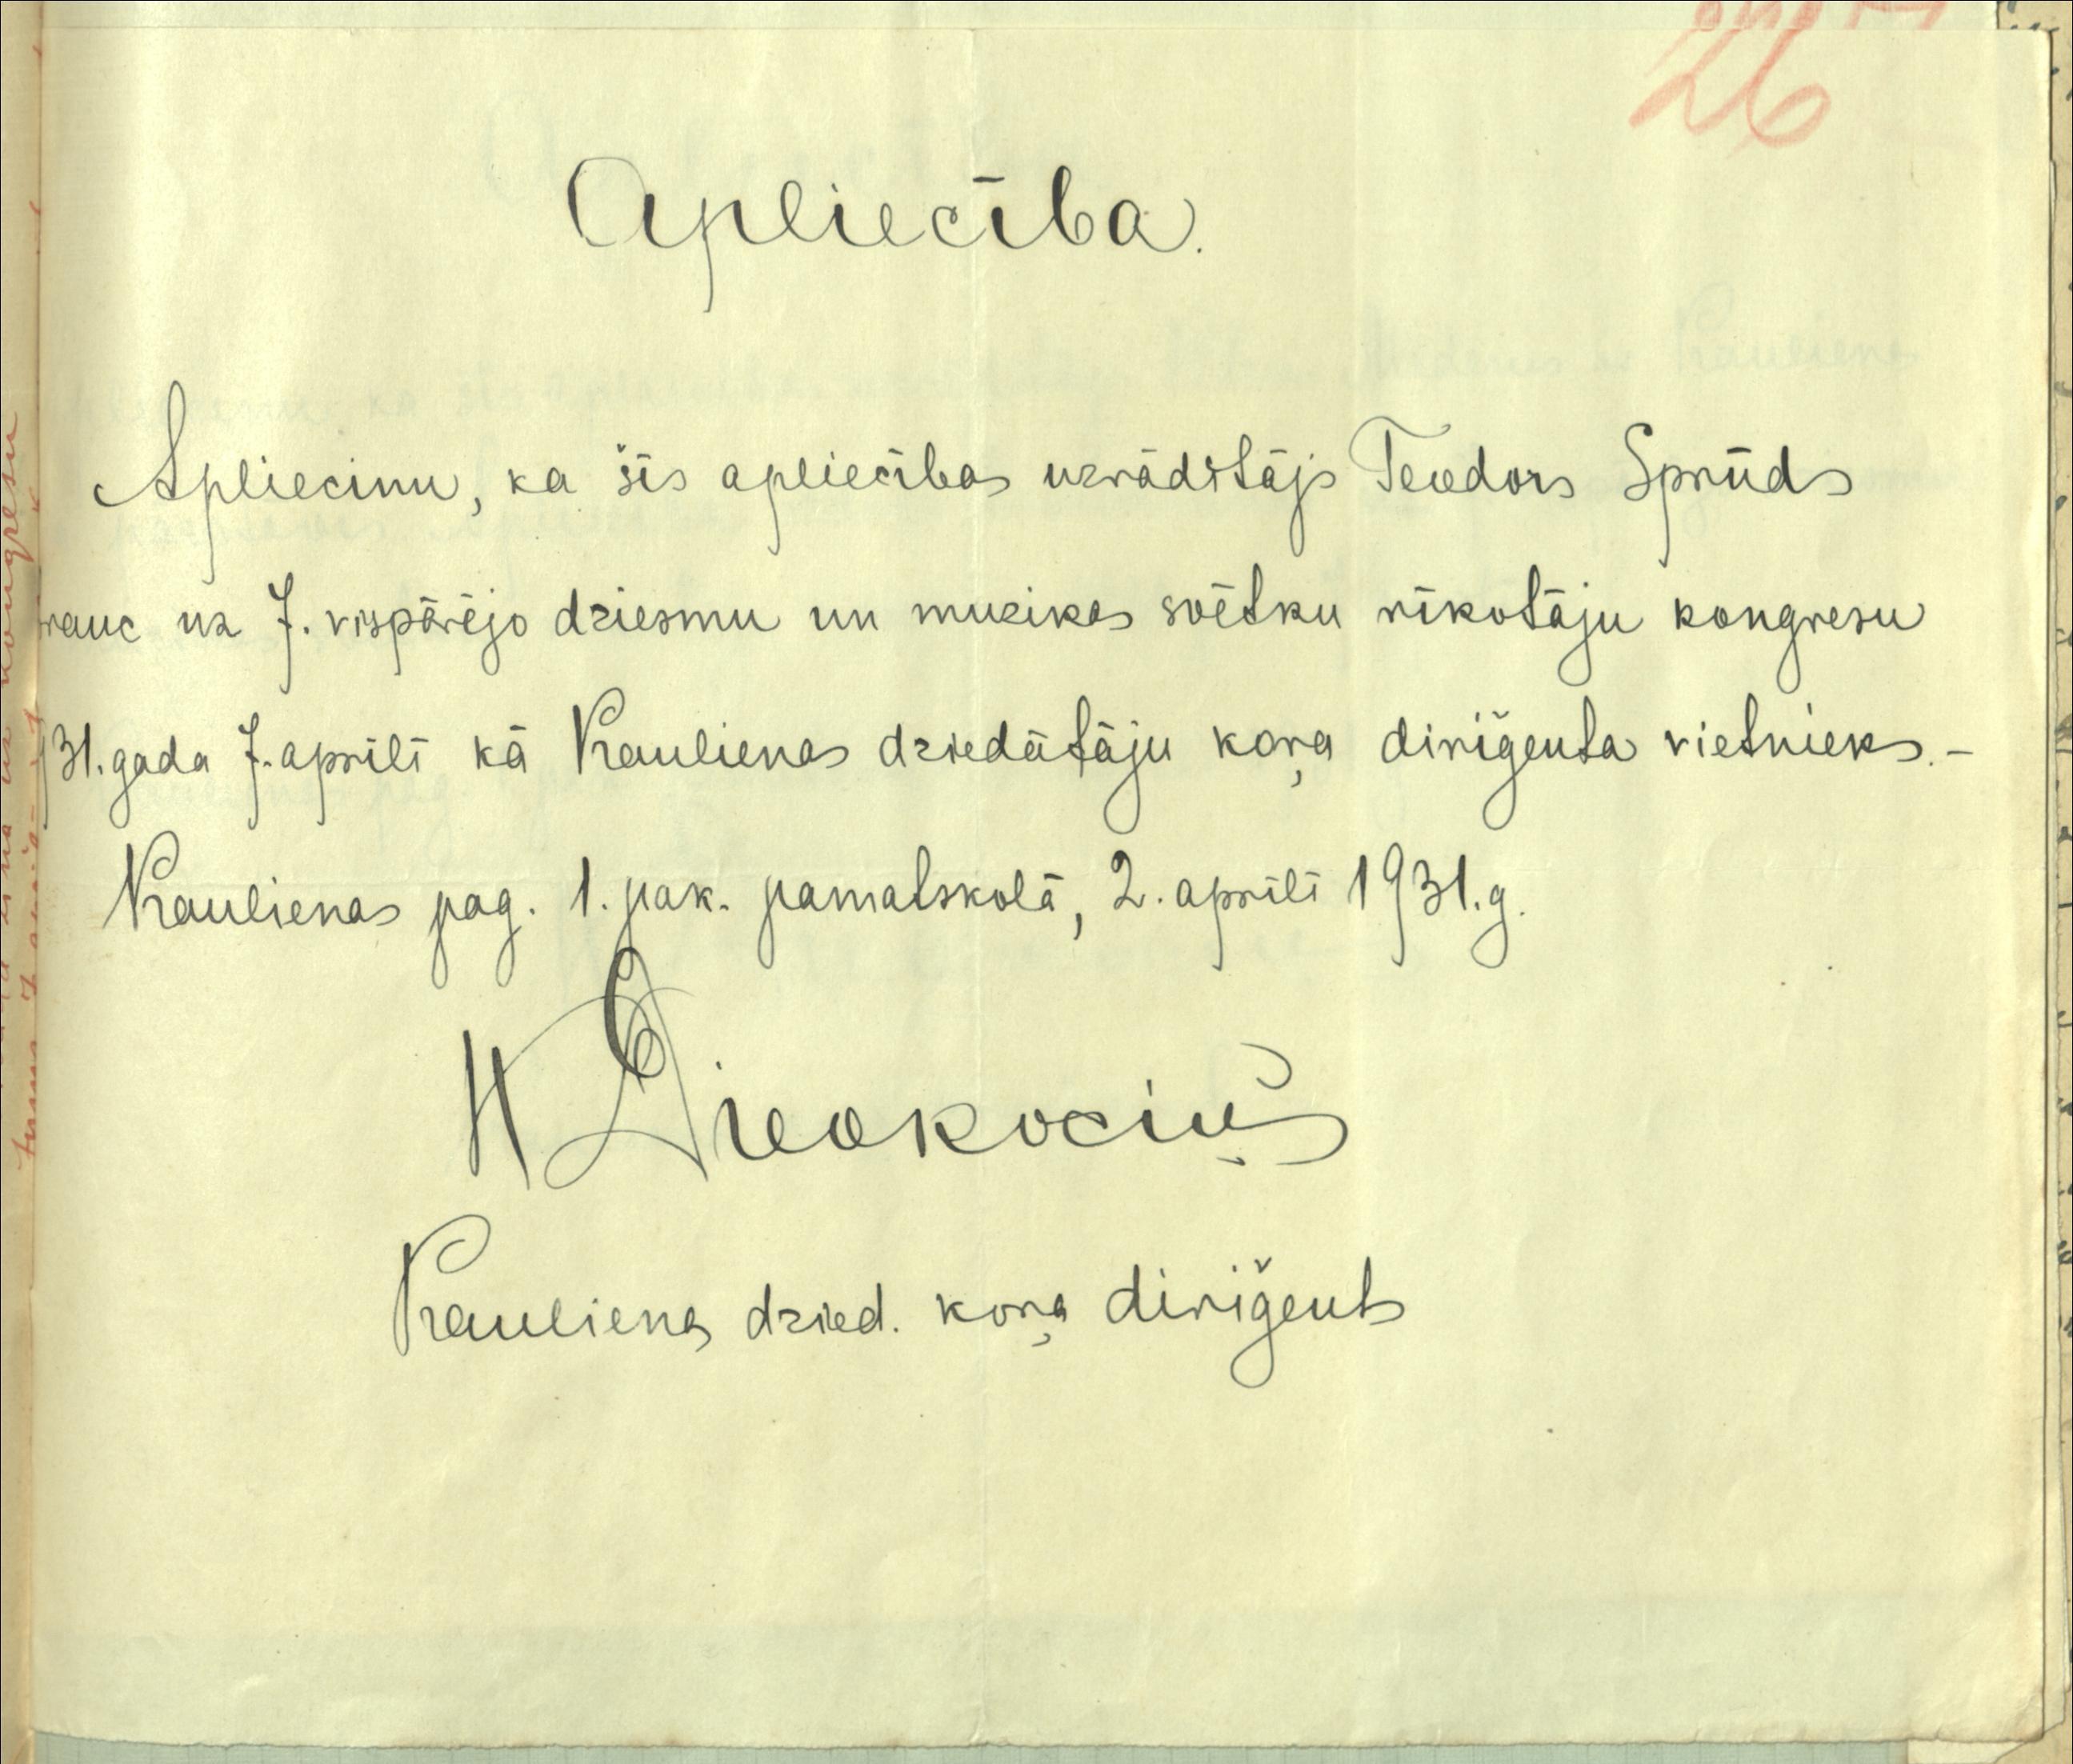 26
Apliecība.
Apliecinu, ka šīs apliecības uzrādītājs Teodors Sprūds
brauc uz 7. vispārējo dziesmu un muzikas svētku rīkotāju kongresu
931. gada 7. aprīlī kā Kraulienas dziedātāju koŗa diriģenta vietnieks. –
Kraulienas pag. 1. pak. pamatskolā, 2. aprīlī 1931. g.
Kraulienas dzied. koŗa diriģents